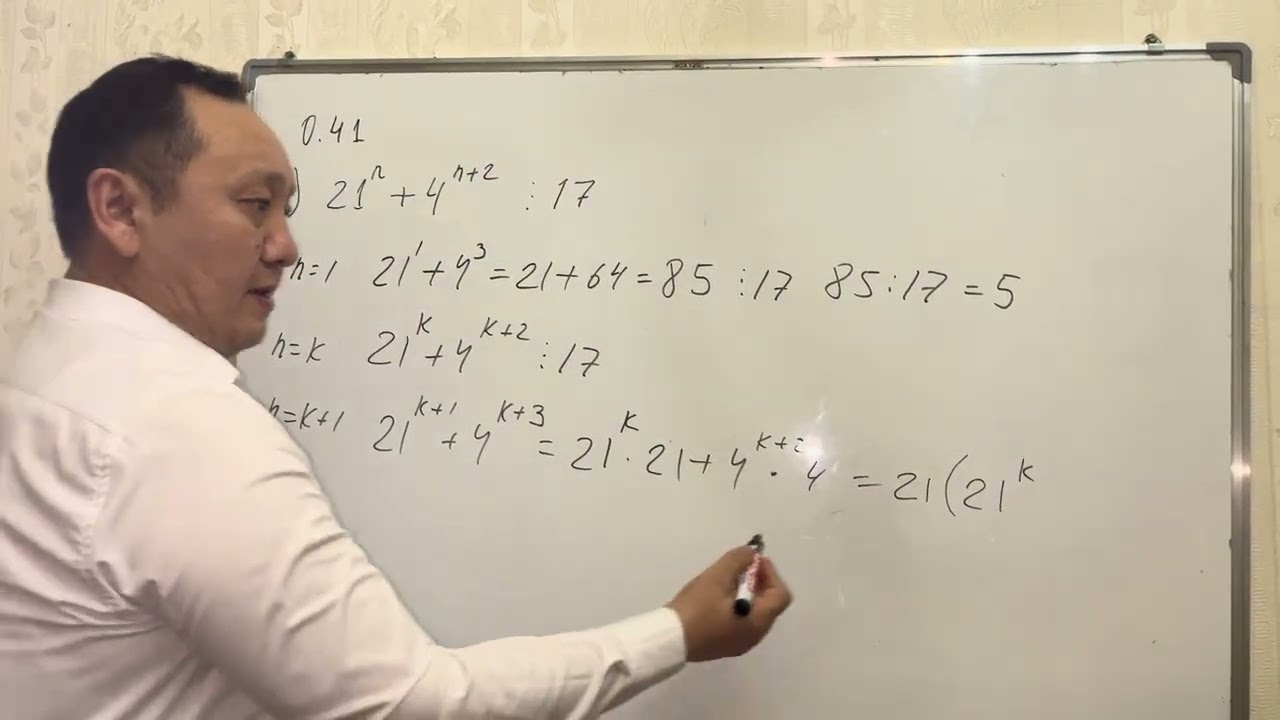 0.41
) 21ⁿ + 4ⁿ⁺² ⋮ 17
n=1 21¹ + 4³ = 21 + 64 = 85 ⋮ 17 85 : 17 = 5
n=k 21ᵏ + 4ᵏ⁺² ⋮ 17
n=k+1 21ᵏ⁺¹ + 4ᵏ⁺³ = 21ᵏ · 21 + 4ᵏ⁺² · 4 = 21(21ᵏ